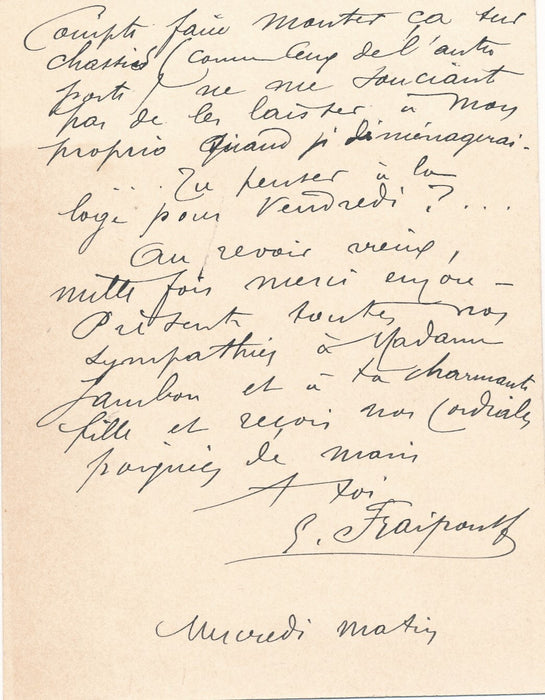 Compte faire monter ça sur
chassis (comme ceux de l'autre
porte) ne me souciant
pas de les laisser à mon
proprio quand je déménagerai.
... Tu penser à la
loge pour Vendredi ?...
Au revoir vieux,
mille fois merci encore —
Présente toutes nos
sympathies à Madame
Jambon et à ta charmante
fille et reçois nos cordiales
poignées de main
A toi
G. Fraipont
Mercredi matin